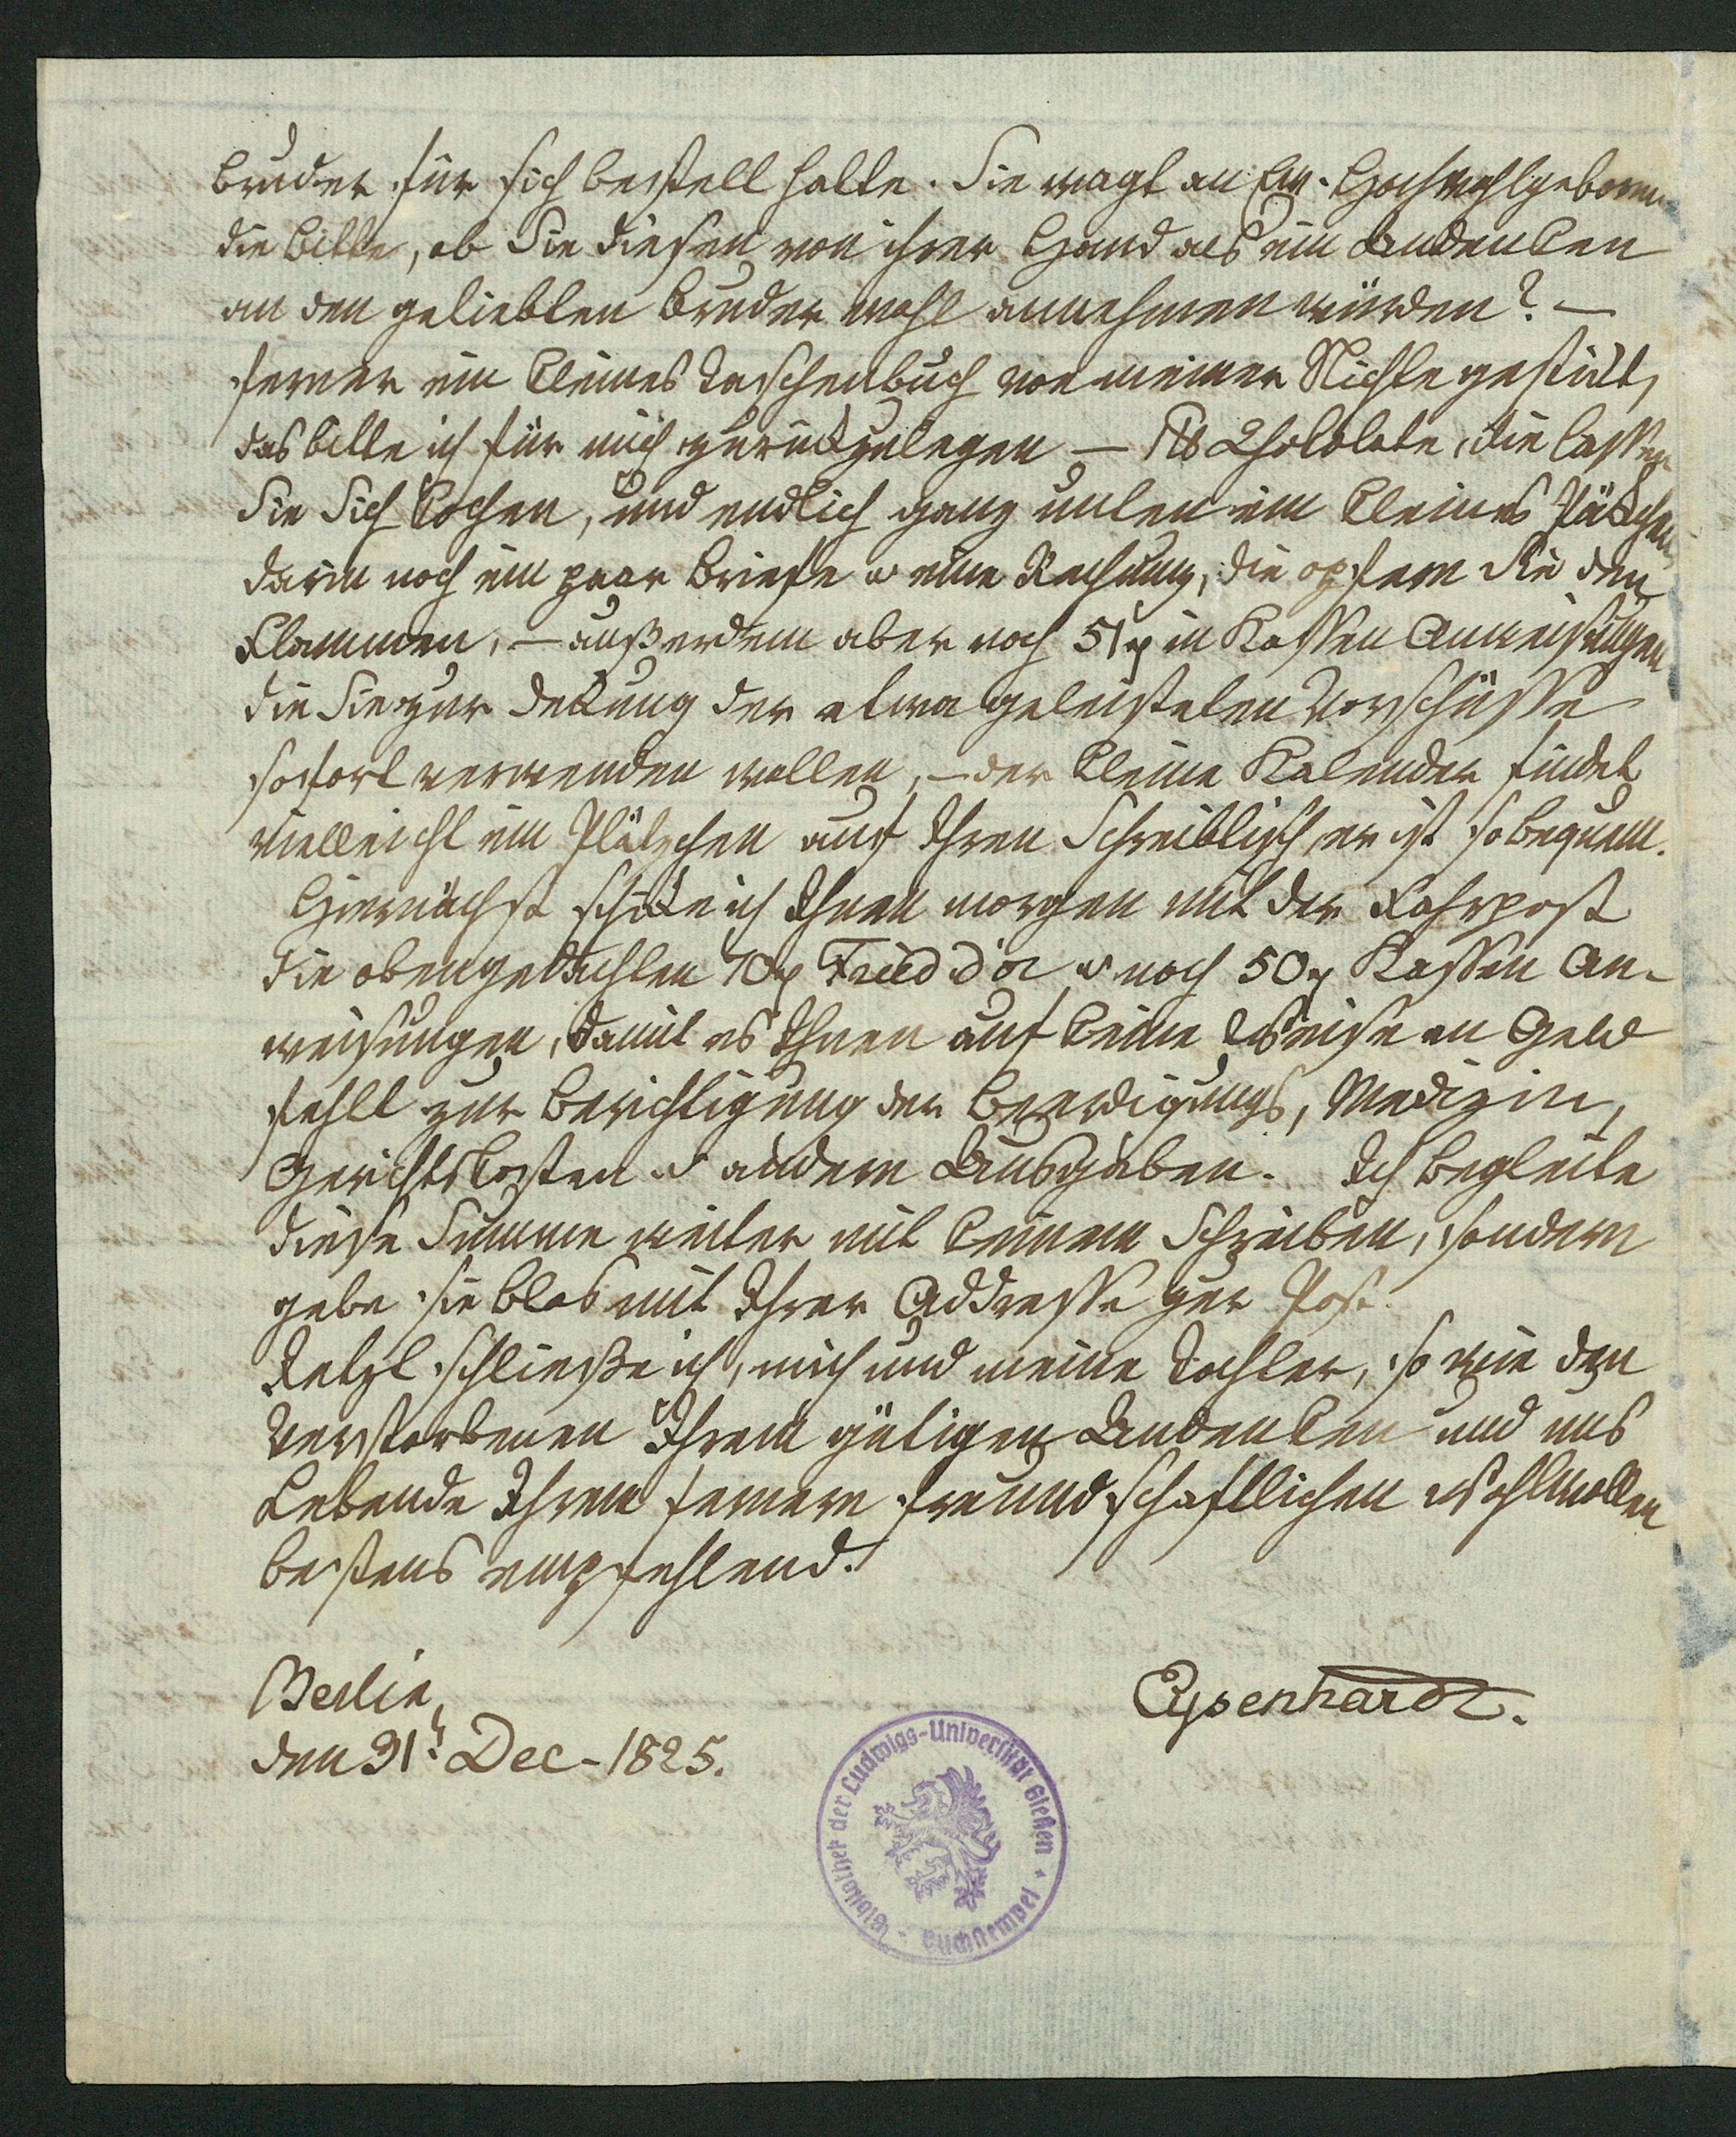 Bruder für sich bestell hatte. Sie wagt an Ew. Hochwohlgeboren
die Bitte, ob Sie diesen von ihrer Hand als ein Andenken
an den geliebten Bruder wohl annehmen würden? —
ferner ein kleines Taschenbuch von meiner Nichte gestickt,
das bitte ich für mich zurückzulegen — Chokolate, die lassen
Sie Sich kochen, und endlich ganz unten ein kleines Päckchen
darin noch ein paar Briefe u eine Rechnung, die opfern Sie den
Flammen, — außerdem aber noch 51 in Kassen Anweisungen
die Sie zur Deckung der etwa geleisteten Vorschüsse
sofort verwenden wollen, — der kleine Kalender findet
vielleicht ein Plätzchen auf Ihren Schreibtisch, er ist so bequem.
Hiernächst schicke ich Ihnen morgen mit der Fahrpost
die obengedachten 70 Fried d'or u noch 50 Kassen An-
weisungen, damit es Ihnen auf keine Weise an Geld
fehlt zur Berichtigung der Beerdigungs, Medizin,
Gerichtskosten u andern Ausgaben. Ich begleite
diese Summe weiter mit keinem Schreiben, sondern
gebe sie blos mit Ihrer Addresse zur Post.
Jetzt schließe ich, mich und meine Tochter, so wie den
Verstorbenen Ihrem gütigen Andenken und uns
Lebende Ihrem fernern freundschaftlichen Wohlwollen
bestens empfehlend.
Berlin,
den 31t Dec - 1825.
Eysenhardt.
Bibliothek der Ludwigs-Universität Gießen
Buchstempel